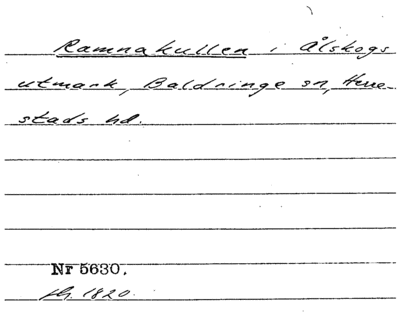 Ramnakullen i Ålskogs
utmark, Baldringe sn, Herre-
stads hd.
Nr 5630.
1820.